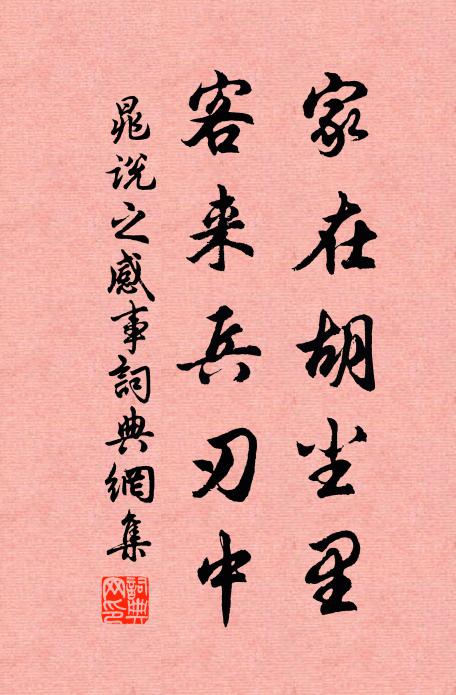 家在胡尘里
客来兵刃中
晁说之感事詞典網集
詞典网印